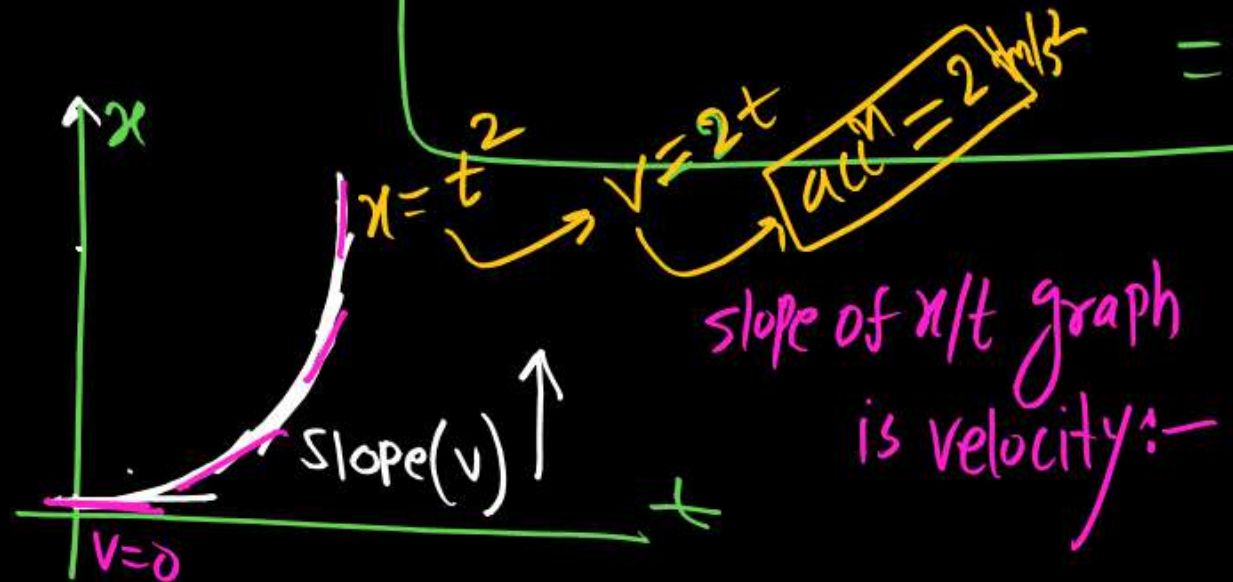 =
x
x = t²
v = 2t
accⁿ = 2 m/s²
slope of x/t graph
is velocity:-
slope(v) ↑
t
v=0